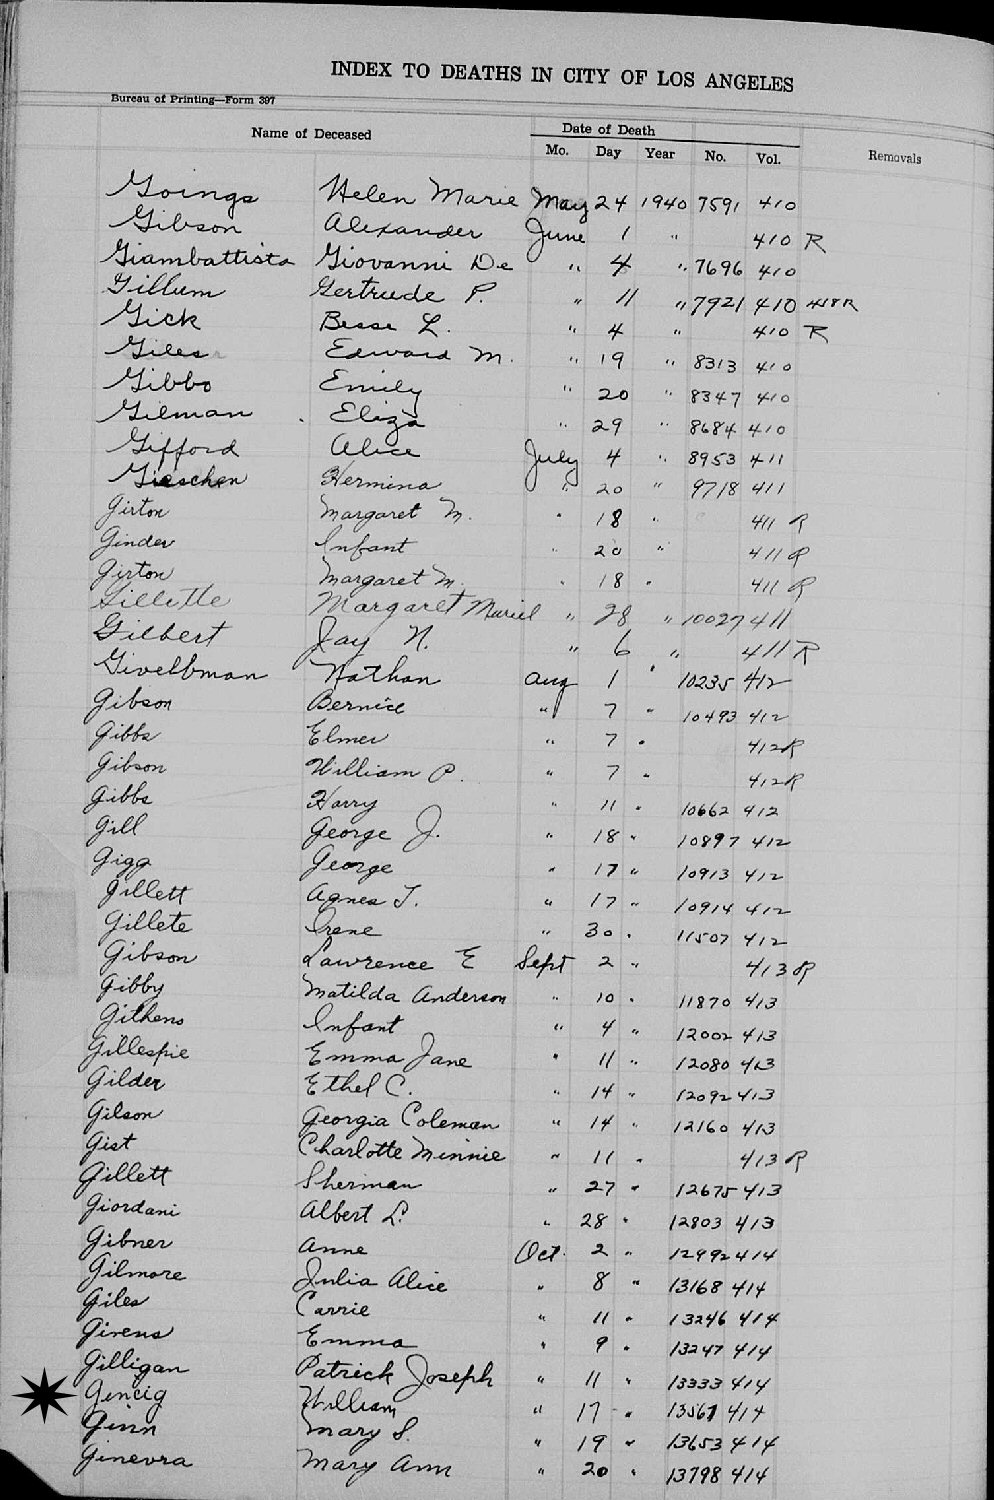 INDEX TO DEATHS IN CITY OF LOS ANGELES
Bureau of Printing—Form 397
Name of Deceased Date of Death Removals
Mo. Day Year No. Vol.
Goings Helen Marie May 24 1940 7591 410
Gibson Alexander June 1 " 410 R
Giambattista Giovanni De " 4 " 7696 410
Gillum Gertrude P. " 11 " 7921 410 418R
Gick Besse L. " 4 " 410 R
Giles Edward M. " 19 " 8313 410
Gibbo Emily " 20 " 8347 410
Gilman Eliza " 29 " 8684 410
Gifford Alice July 4 " 8953 411
Gieschen Hermina " 20 " 9718 411
Girton Margaret M. " 18 " 411 R
Ginder Infant " 20 " 411 R
Girton Margaret M. " 18 " 411 R
Gillette Margaret Mariel " 28 " 10027 411
Gilbert Jay N. " 6 " 411 R
Givelbman Nathan Aug 1 " 10235 412
Gibson Bernice " 7 " 10493 412
Gibbs Elmer " 7 " 412 R
Gibson William P. " 7 " 412 R
Gibbs Harry " 11 " 10662 412
Gill George J. " 18 " 10897 412
Gigg George " 17 " 10913 412
Gillett Agnes T. " 17 " 10914 412
Gillete Irene " 30 " 11507 412
Gibson Lawrence E Sept 2 " 413 R
Gibby Matilda Anderson " 10 " 11870 413
Githens Infant " 4 " 12002 413
Gillespie Emma Jane " 11 " 12080 413
Gilder Ethel C. " 14 " 12092 413
Gilson Georgia Coleman " 14 " 12160 413
Gist Charlotte Minnie " 11 " 413 R
Gillett Sherman " 27 " 12675 413
Giordani Albert L. " 28 " 12803 413
Gibner Anne Oct. 2 " 12992 414
Gilmore Julia Alice " 8 " 13168 414
Giles Carrie " 11 " 13246 414
Girens Emma " 9 " 13247 414
Gilligan Patrick Joseph " 11 " 13333 414
Gencig William " 17 " 13567 414
Ginn Mary S. " 19 " 13653 414
Ginevra Mary Ann " 20 " 13798 414